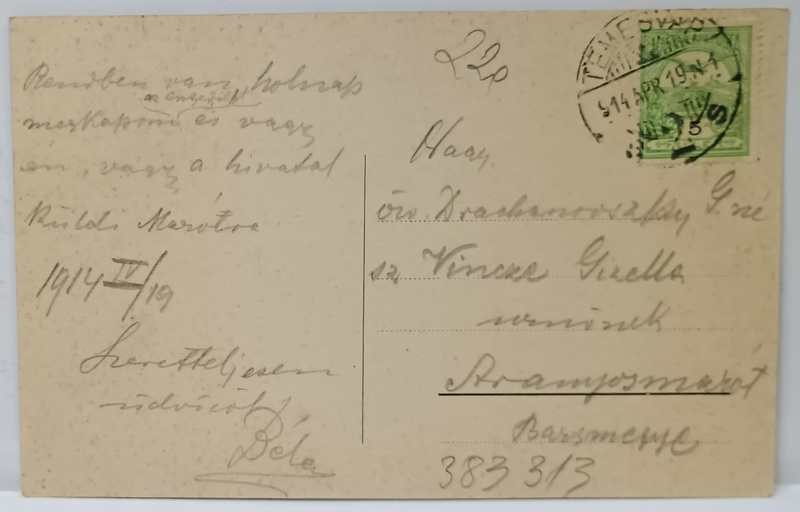 Rendben van, holnap
az engedélyt
megkapom és vagy
én, vagy a hivatal
küldi Marótra
1914 IV/19
Szeretteljesen
üdvözöl
Béla
220
TEMESVÁR
914 ÁPR. 19. N 1
5
Nagy.
özv. Drachanovszky G.né
sz. Vincze Gizella
urnőnek
Aranyosmarót
Barsmegye
383 313